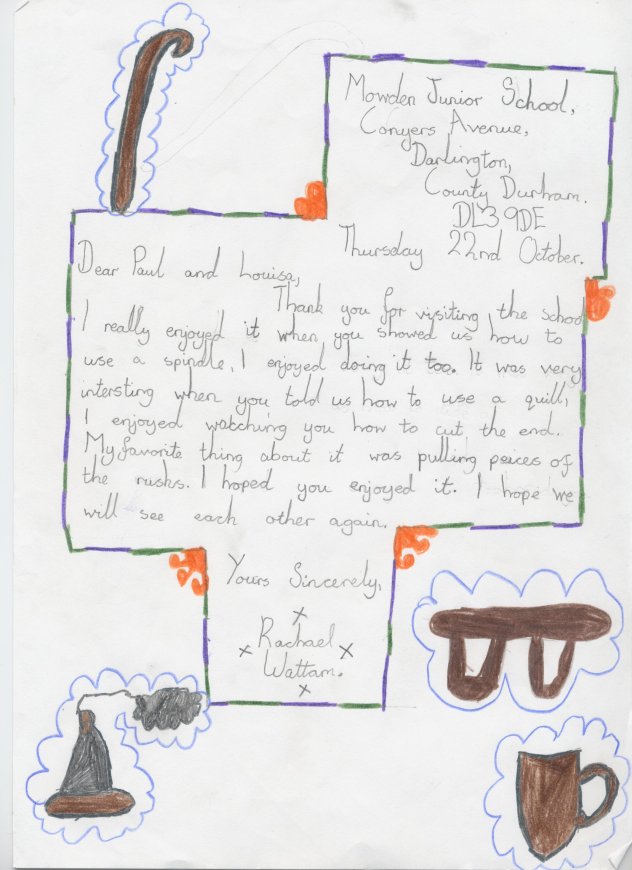 Mowden Junior School,
Conyers Avenue,
Darlington,
County Durham.
DL3 9DE
Thursday 22nd October.
Dear Paul and Louisa,
Thank you for visiting the school
I really enjoyed it when you showed us how to
use a spindle, I enjoyed doing it too. It was very
intersting when you told us how to use a quill,
I enjoyed watching you how to cut the end.
My favorite thing about it was pulling peices of
the rushs. I hoped you enjoyed it. I hope we
will see each other again.
Yours Sincerely,
x
x Rachael x
Wattam.
x